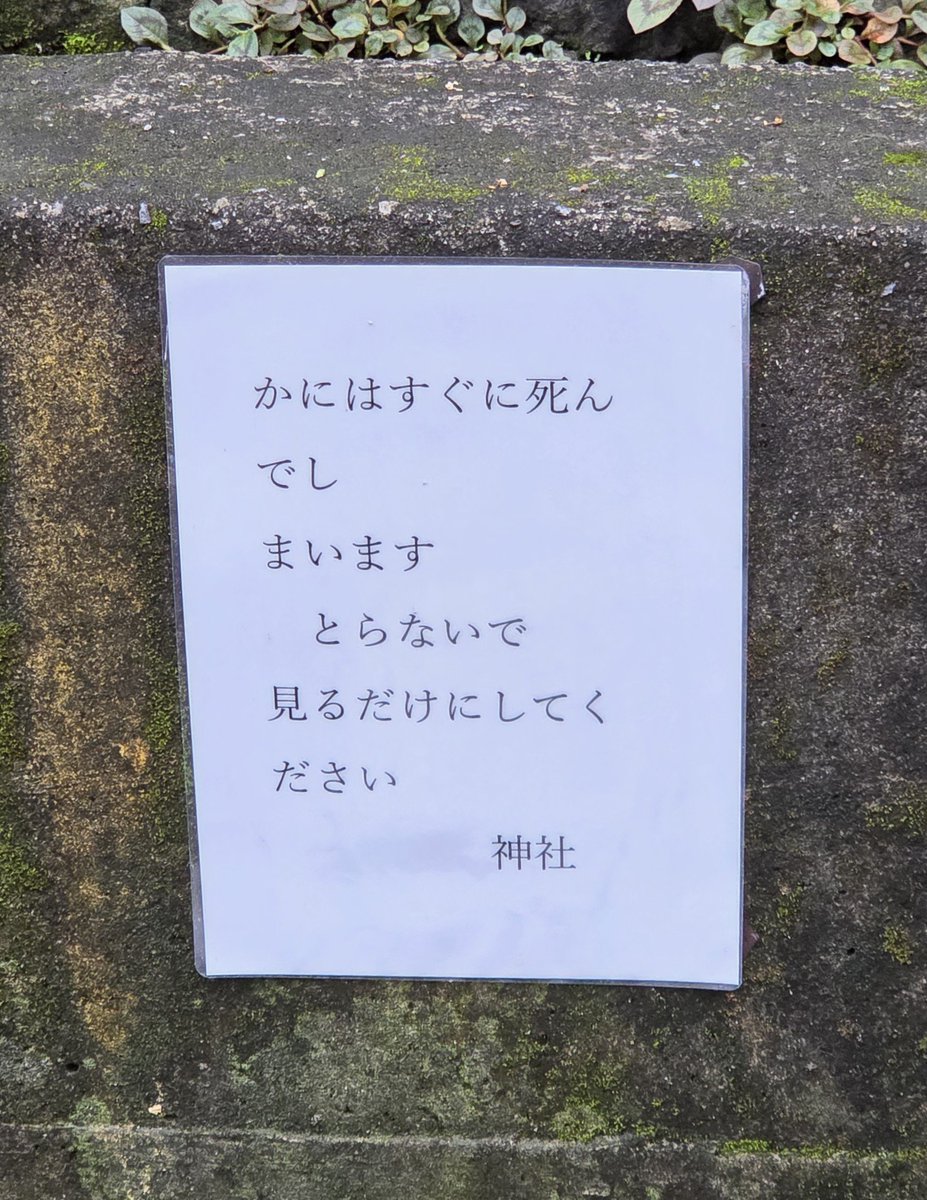 かにはすぐに死ん
でし
まいます
とらないで
見るだけにしてく
ださい
神社